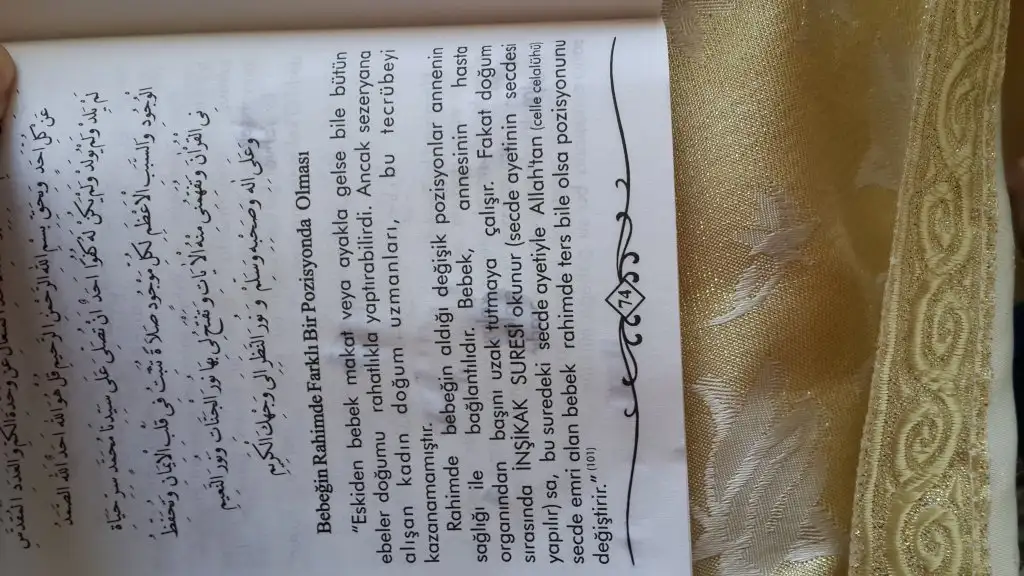 عَنْ كُلِّ اَحَدٍ وَبِحَقِّ بِسْمِ اللهِ الرَّحْمٰنِ الرَّحِيمِ قُلْ هُوَ اللهُ اَحَدٌ اَللهُ الصَّمَدُ
لَمْ يَلِدْ وَلَمْ يُولَدْ وَلَمْ يَكُنْ لَهُ كُفُوًا اَحَدٌ اَنْ تُصَلِّيَ عَلَى سَيِّدِنَا مُحَمَّدٍ سِرِّ حَيَاةِ
الْوُجُودِ وَالسَّبَبِ الْاَعْظَمِ لِكُلِّ مَوْجُودٍ صَلَاةً تُثَبِّتُ فِي قَلْبِي الْاِيمَانَ وَتُحَفِّظُ
نِي الْقُرْاٰنَ وَتُفَهِّمُنِي مِنْهُ الْاٰيَاتِ وَتَفْتَحُ لِي بِهَا نُورَ الْجَنَّاتِ وَنُورَ النَّعِيمِ
وَعَلَى اٰلِهِ وَصَحْبِهِ وَسَلِّمْ وَنُورَ النَّظَرِ اِلَى وَجْهِكَ الْكَرِيمِ
Bebeğin Rahimde Farklı Bir Pozisyonda Olması
"Eskiden bebek makat veya ayakla gelse bile bütün
ebeler doğumu rahatlıkla yaptırabilirdi. Ancak sezeryana
alışan kadın doğum uzmanları, bu tecrübeyi
kazanamamıştır.
Rahimde bebeğin aldığı değişik pozisyonlar annenin
sağlığı ile bağlantılıdır. Bebek, annesinin hasta
organından başını uzak tutmaya çalışır. Fakat doğum
sırasında İNŞİKAK SURESİ okunur (secde ayetinin secdesi
yapılır) sa, bu suredeki secde ayetiyle Allah'tan (celle celalühü)
secde emri alan bebek rahimde ters bile olsa pozisyonunu
değiştirir." (101)
74